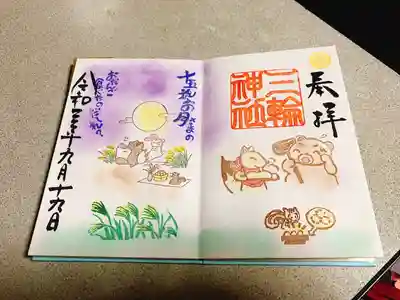 奉拝
三輪
神社
十五夜お月さまの
令和三年九月十九日